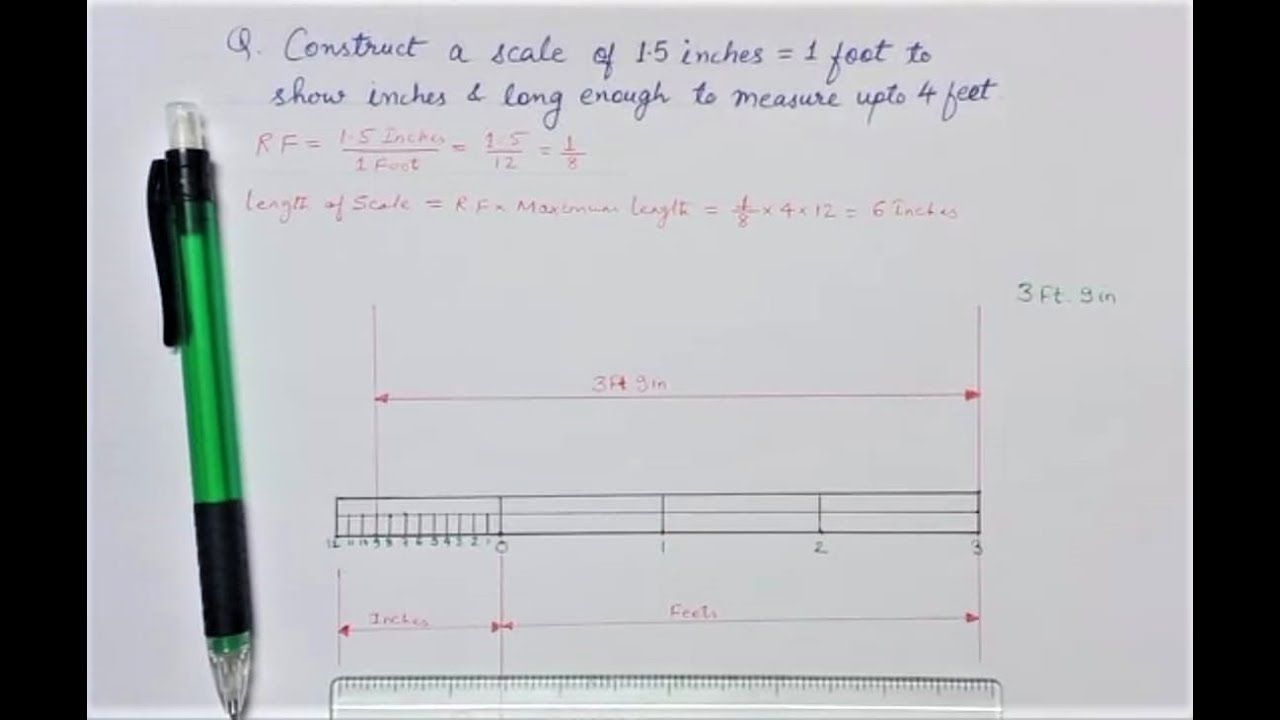 Q. Construct a scale of 1.5 inches = 1 foot to
show inches & long enough to measure upto 4 feet
RF = 1.5 Inches / 1 Foot = 1.5 / 12 = 1/8
Length of Scale = RF × Maximum length = 1/8 × 4 × 12 = 6 Inches
3 Ft. 9 in
3 Ft 9 in
12 11 10 9 8 7 6 5 4 3 2 1 0 1 2 3
Inches Feets